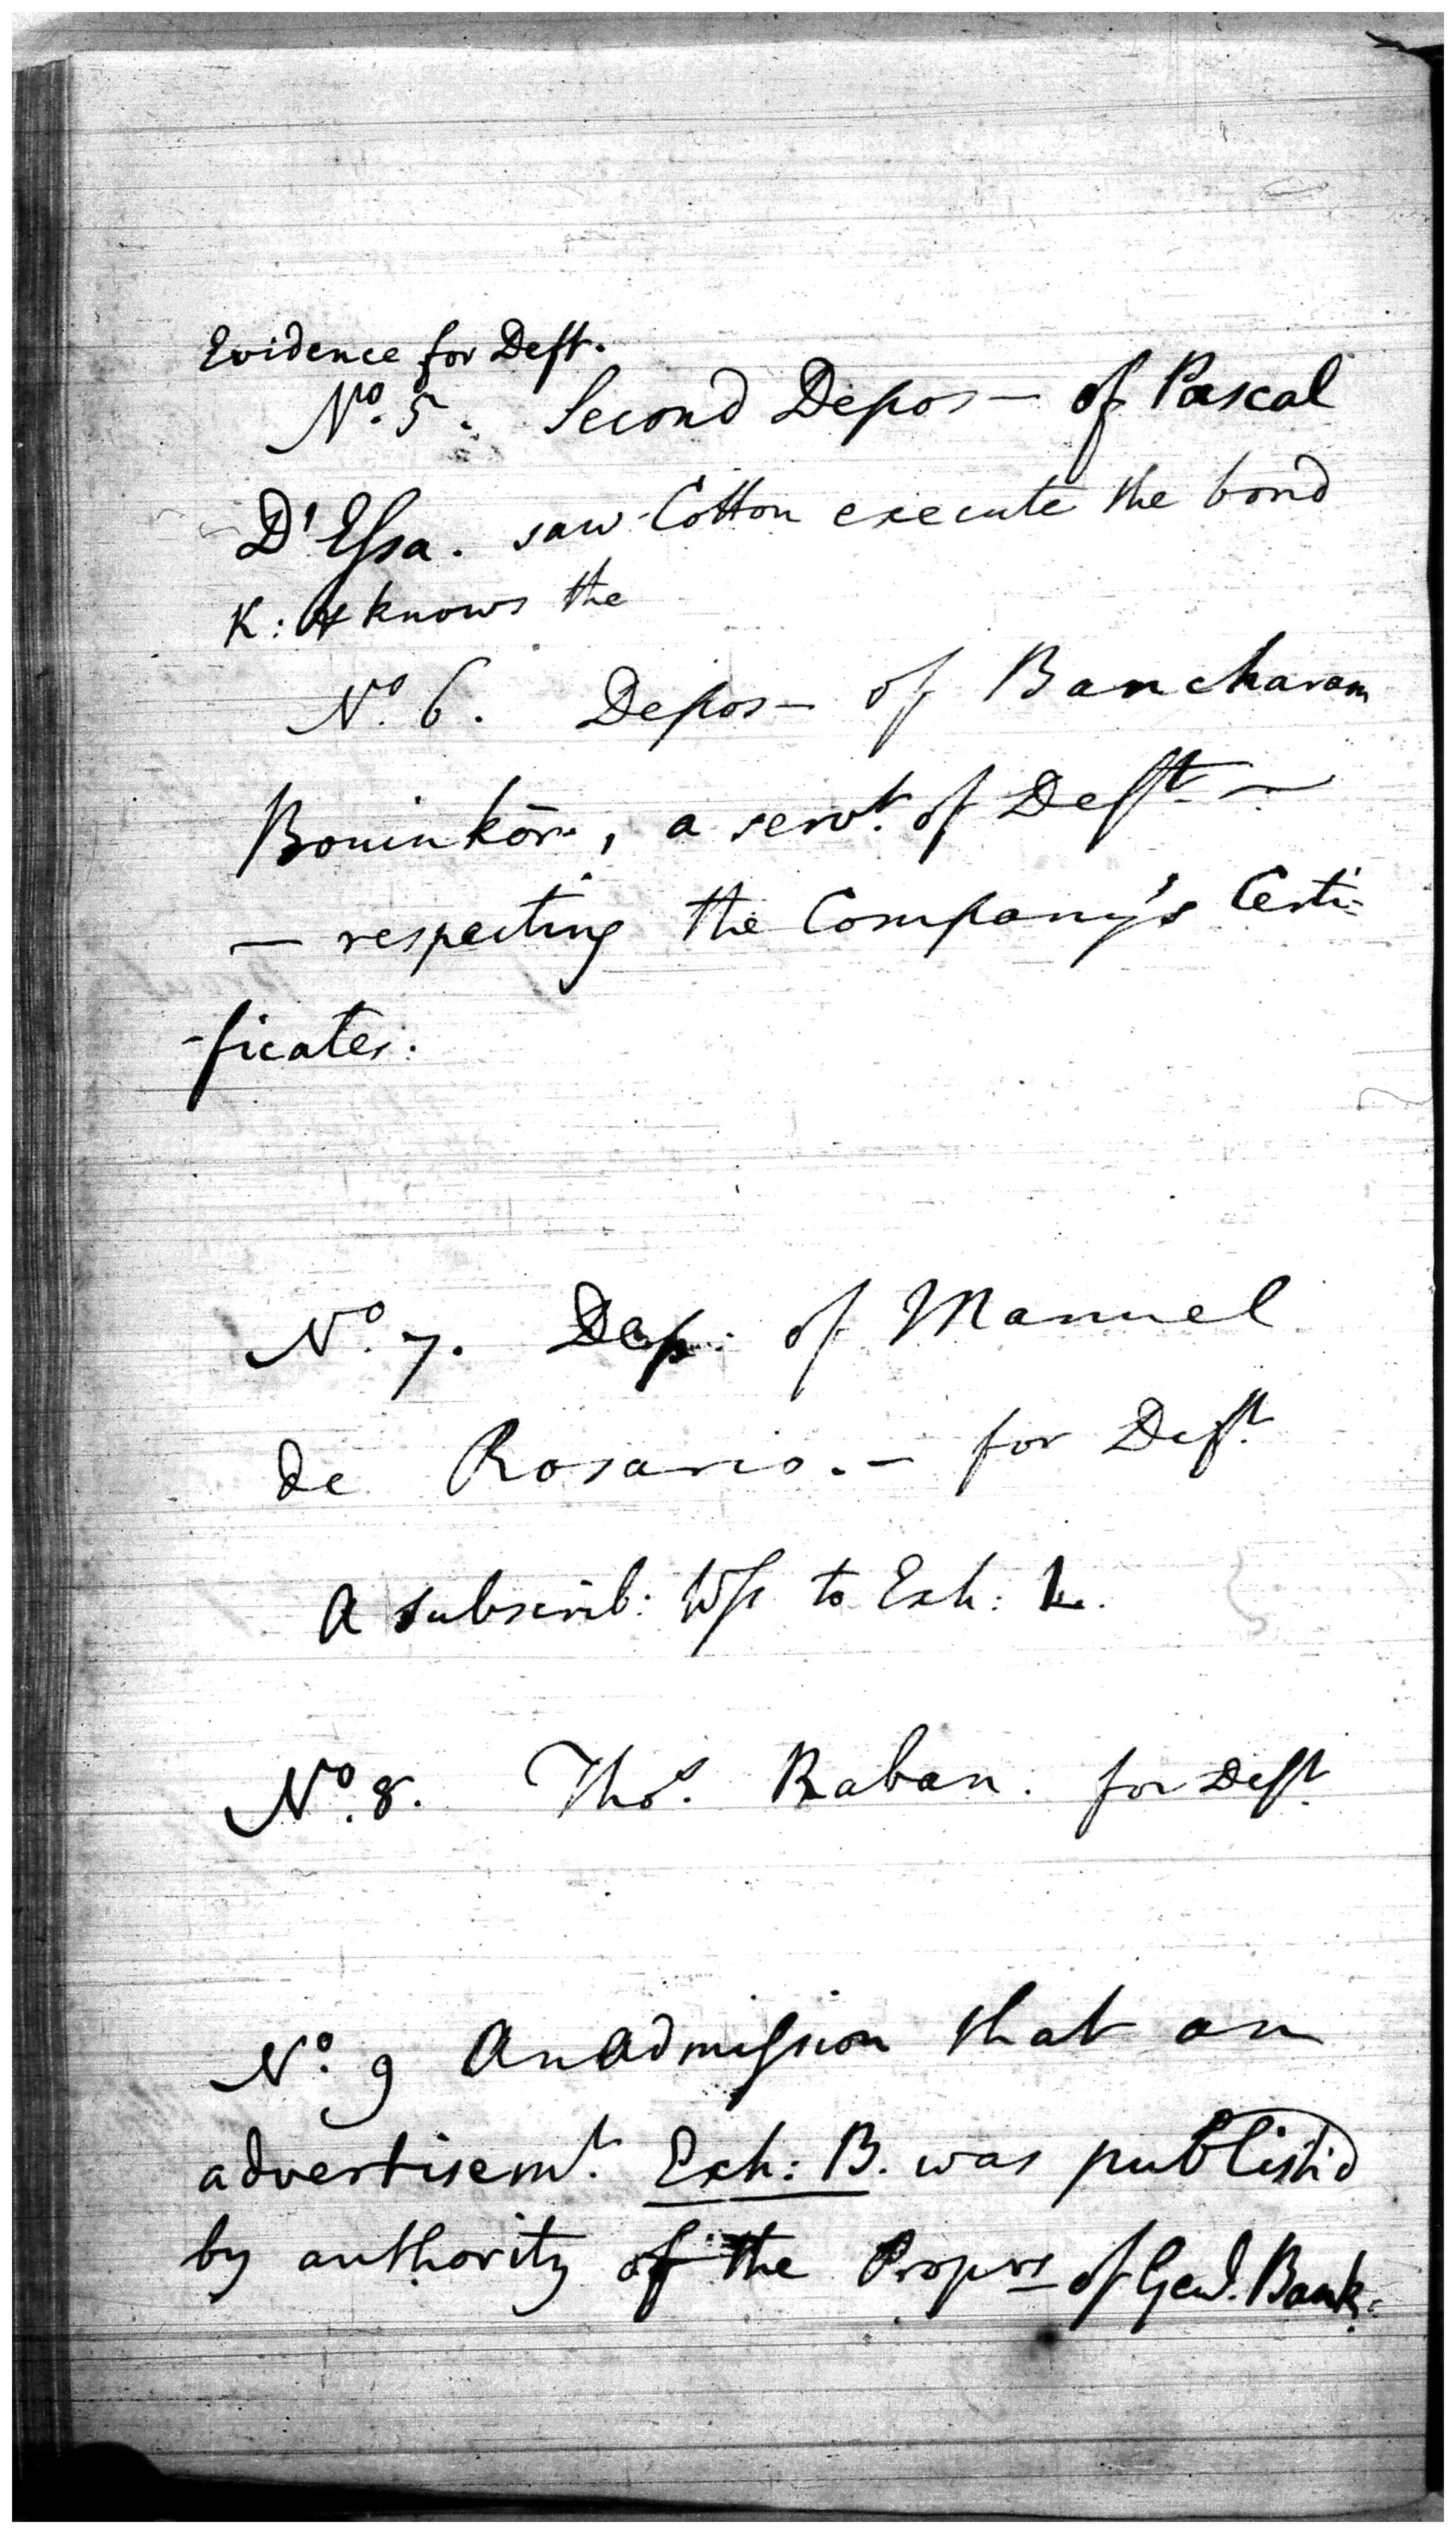 Evidence for Deft.
No. 5. Second Depos— of Pascal
D'Essa. saw Cotton execute the bond
K: & knows the
No. 6. Depos— of Bancharam
, a servt. of Deft. —
— respecting the Company's Certi=
-ficates.
No. 7. Dep. of Manuel
de Rosario. — for Deft.
A subscrib: Wss to Exh: L.
No. 8. Thos. Raban. for Deft.
No. 9 An Admission that an
advertisemt. Exh: B. was publish'd
by authority of the Proprs of Genl. Bank.